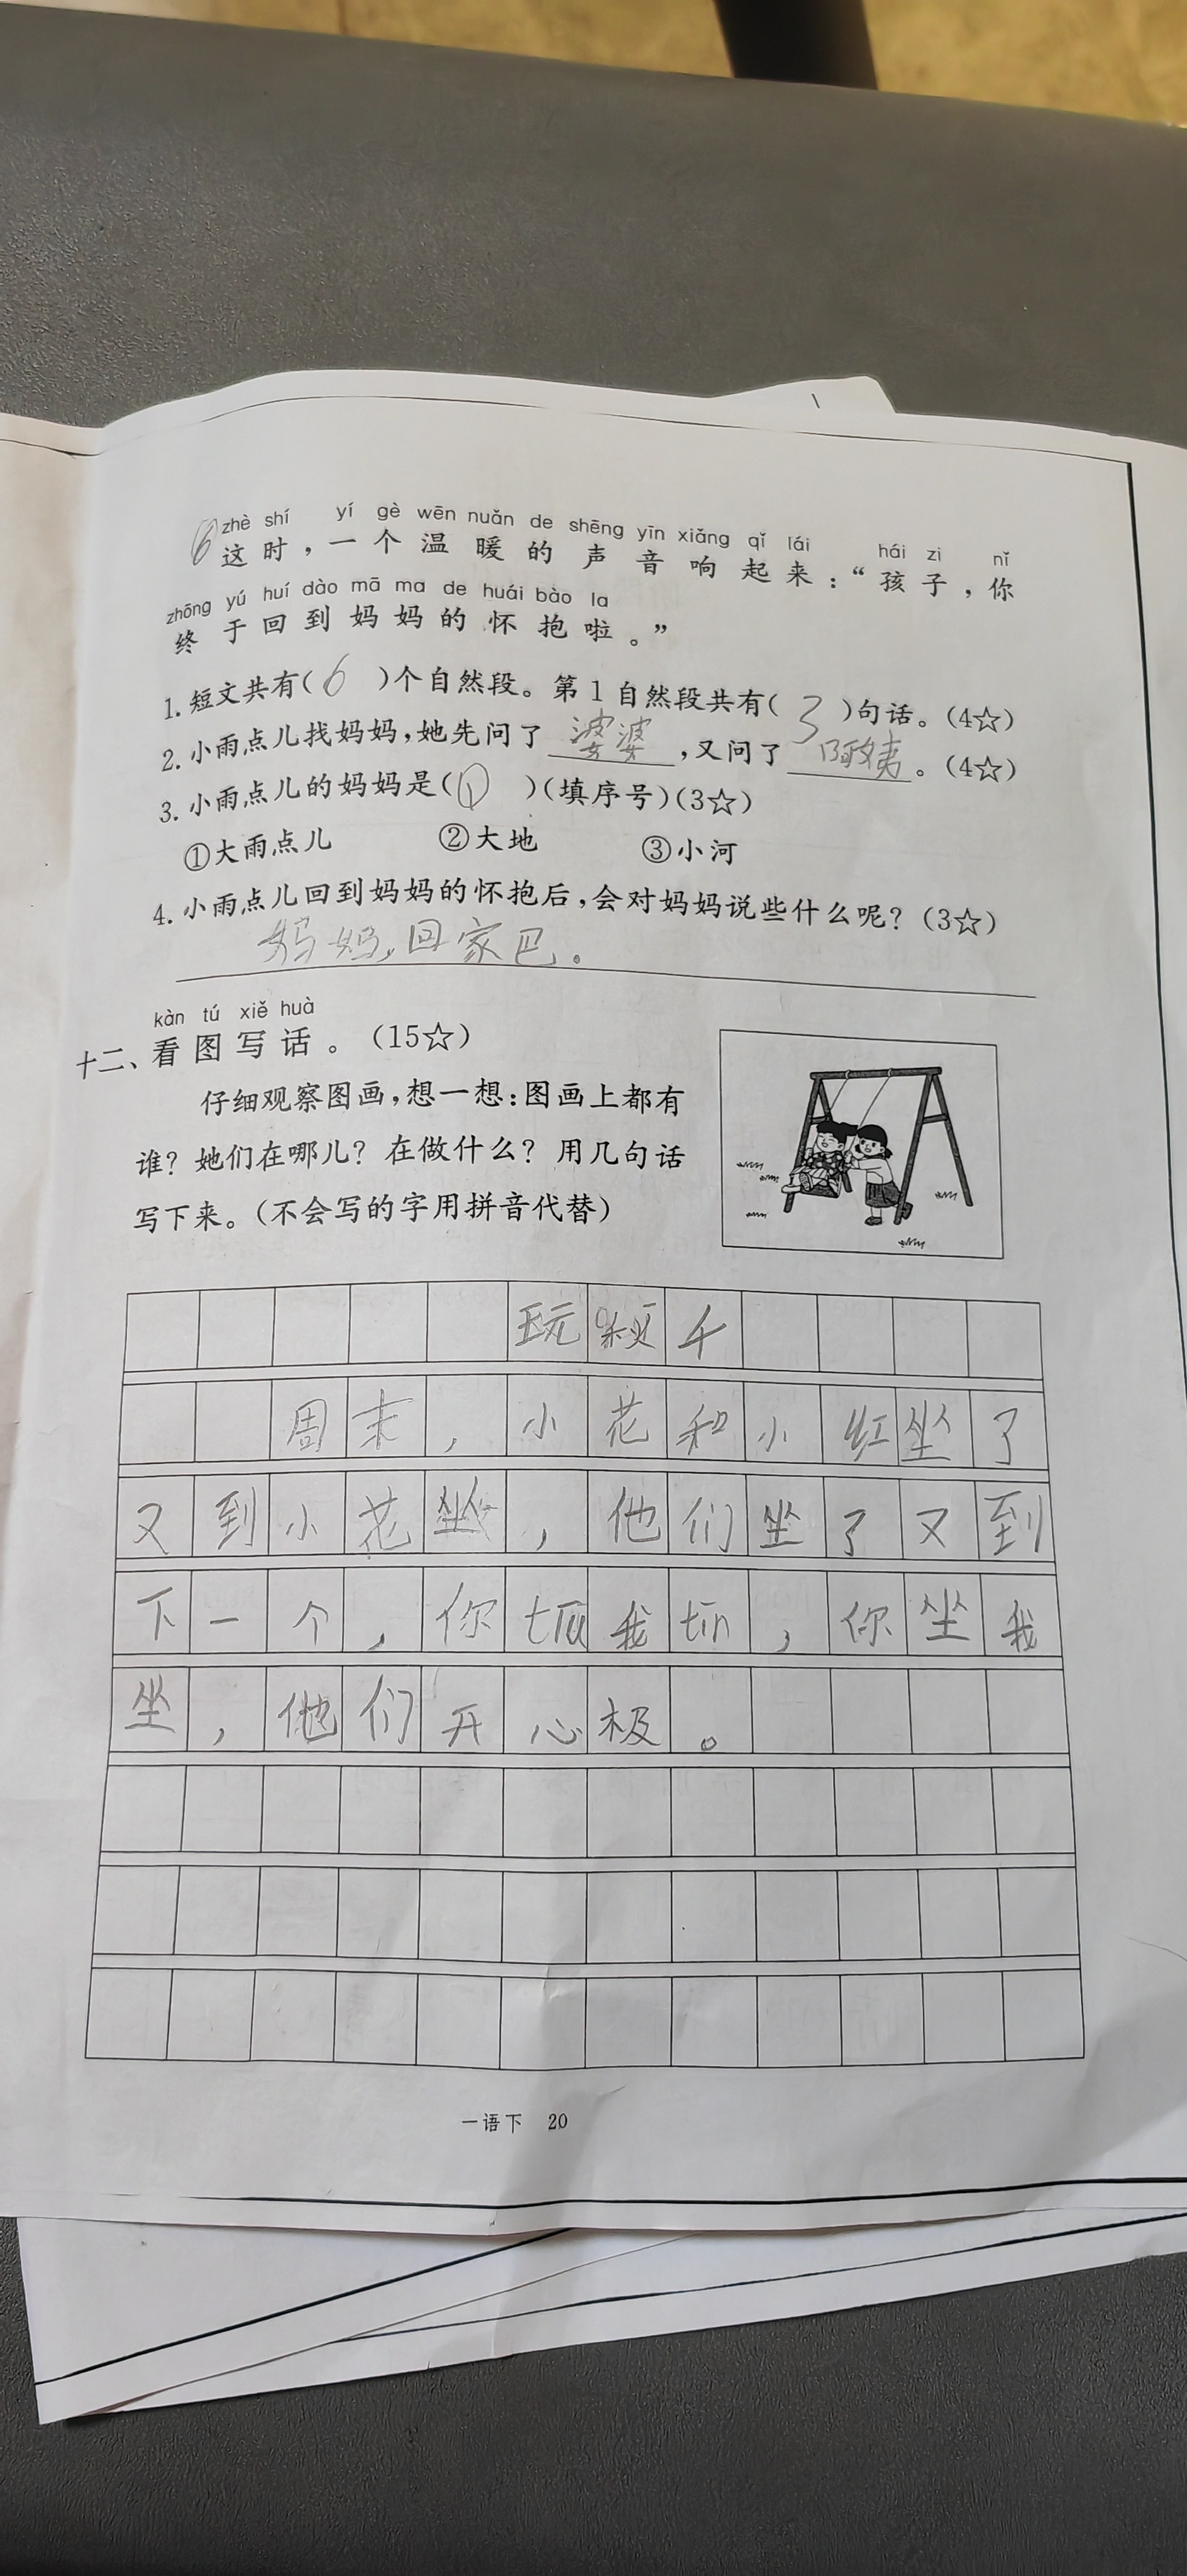 ⑥
zhè shí yí gè wēn nuǎn de shēng yīn xiǎng qǐ lái hái zi nǐ
这时，一个温暖的声音响起来：“孩子，你
zhōng yú huí dào mā ma de huái bào la
终于回到妈妈的怀抱啦。”
1.短文共有(6)个自然段。第1自然段共有(3)句话。(4☆)
2.小雨点儿找妈妈,她先问了婆婆,又问了阿姨。(4☆)
3.小雨点儿的妈妈是(①)(填序号)(3☆)
①大雨点儿 ②大地 ③小河
4.小雨点儿回到妈妈的怀抱后,会对妈妈说些什么呢?(3☆)
妈妈,回家巴。
kàn tú xiě huà
十二、看图写话。(15☆)
仔细观察图画,想一想:图画上都有
谁?她们在哪儿?在做什么?用几句话
写下来。(不会写的字用拼音代替)
玩千
周末，小花和小红坐了
又到小花坐，他们坐了又到
下一个，你我tīn，你坐我
坐，他们开心极。
一语下 20